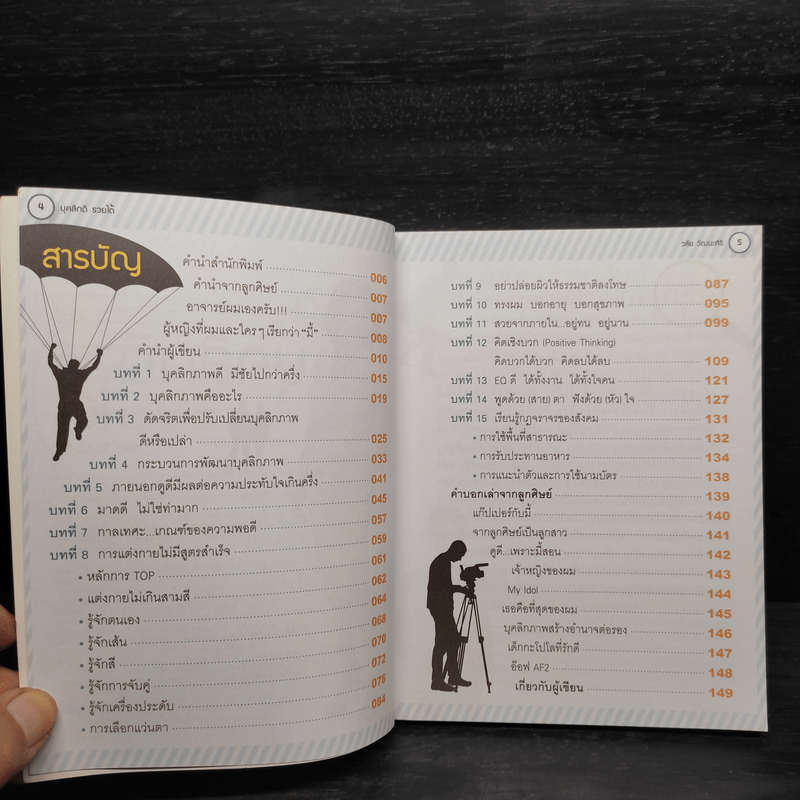 4 บุคลิกดี รวยได้
สารบัญ
คำนำสำนักพิมพ์ 006
คำนำจากลูกศิษย์ 007
อาจารย์ผมเองครับ!!! 007
ผู้หญิงที่ผมและใคร ๆ เรียกว่า "มี้" 008
คำนำผู้เขียน 010
บทที่ 1 บุคลิกภาพดี มีชัยไปกว่าครึ่ง 015
บทที่ 2 บุคลิกภาพคืออะไร 019
บทที่ 3 ดัดจริตเพื่อปรับเปลี่ยนบุคลิกภาพ
ดีหรือเปล่า 025
บทที่ 4 กระบวนการพัฒนาบุคลิกภาพ 033
บทที่ 5 ภายนอกดูดีมีผลต่อความประทับใจเกินครึ่ง 041
บทที่ 6 มาดดี ไม่ใช่ท่ามาก 045
บทที่ 7 กาลเทศะ...เกณฑ์ของความพอดี 057
บทที่ 8 การแต่งกายไม่มีสูตรสำเร็จ 059
• หลักการ TOP 061
• แต่งกายไม่เกินสามสี 062
• รู้จักตนเอง 064
• รู้จักเส้น 068
• รู้จักสี 070
• รู้จักการจับคู่ 072
• รู้จักเครื่องประดับ 076
• การเลือกแว่นตา 084
วลัย วัฒนะศิริ 5
บทที่ 9 อย่าปล่อยผิวให้ธรรมชาติลงโทษ 087
บทที่ 10 ทรงผม บอกอายุ บอกสุขภาพ 095
บทที่ 11 สวยจากภายใน...อยู่ทน อยู่นาน 099
บทที่ 12 คิดเชิงบวก (Positive Thinking)
คิดบวกได้บวก คิดลบได้ลบ 109
บทที่ 13 EQ ดี ได้ทั้งงาน ได้ทั้งใจคน 121
บทที่ 14 พูดด้วย (สาย) ตา ฟังด้วย (หัว) ใจ 127
บทที่ 15 เรียนรู้กฎจราจรของสังคม 131
• การใช้พื้นที่สาธารณะ 132
• การรับประทานอาหาร 134
• การแนะนำตัวและการใช้นามบัตร 138
คำบอกเล่าจากลูกศิษย์ 139
แก๊ปเปอร์กับมี้ 140
จากลูกศิษย์เป็นลูกสาว 141
ดูดี...เพราะมี้สอน 142
เจ้าหญิงของผม 143
My Idol 144
เธอคือที่สุดของผม 145
บุคลิกภาพสร้างอำนาจต่อรอง 146
เด็กกะโปโลที่รักดี 147
อ๊อฟ AF2 148
เกี่ยวกับผู้เขียน 149